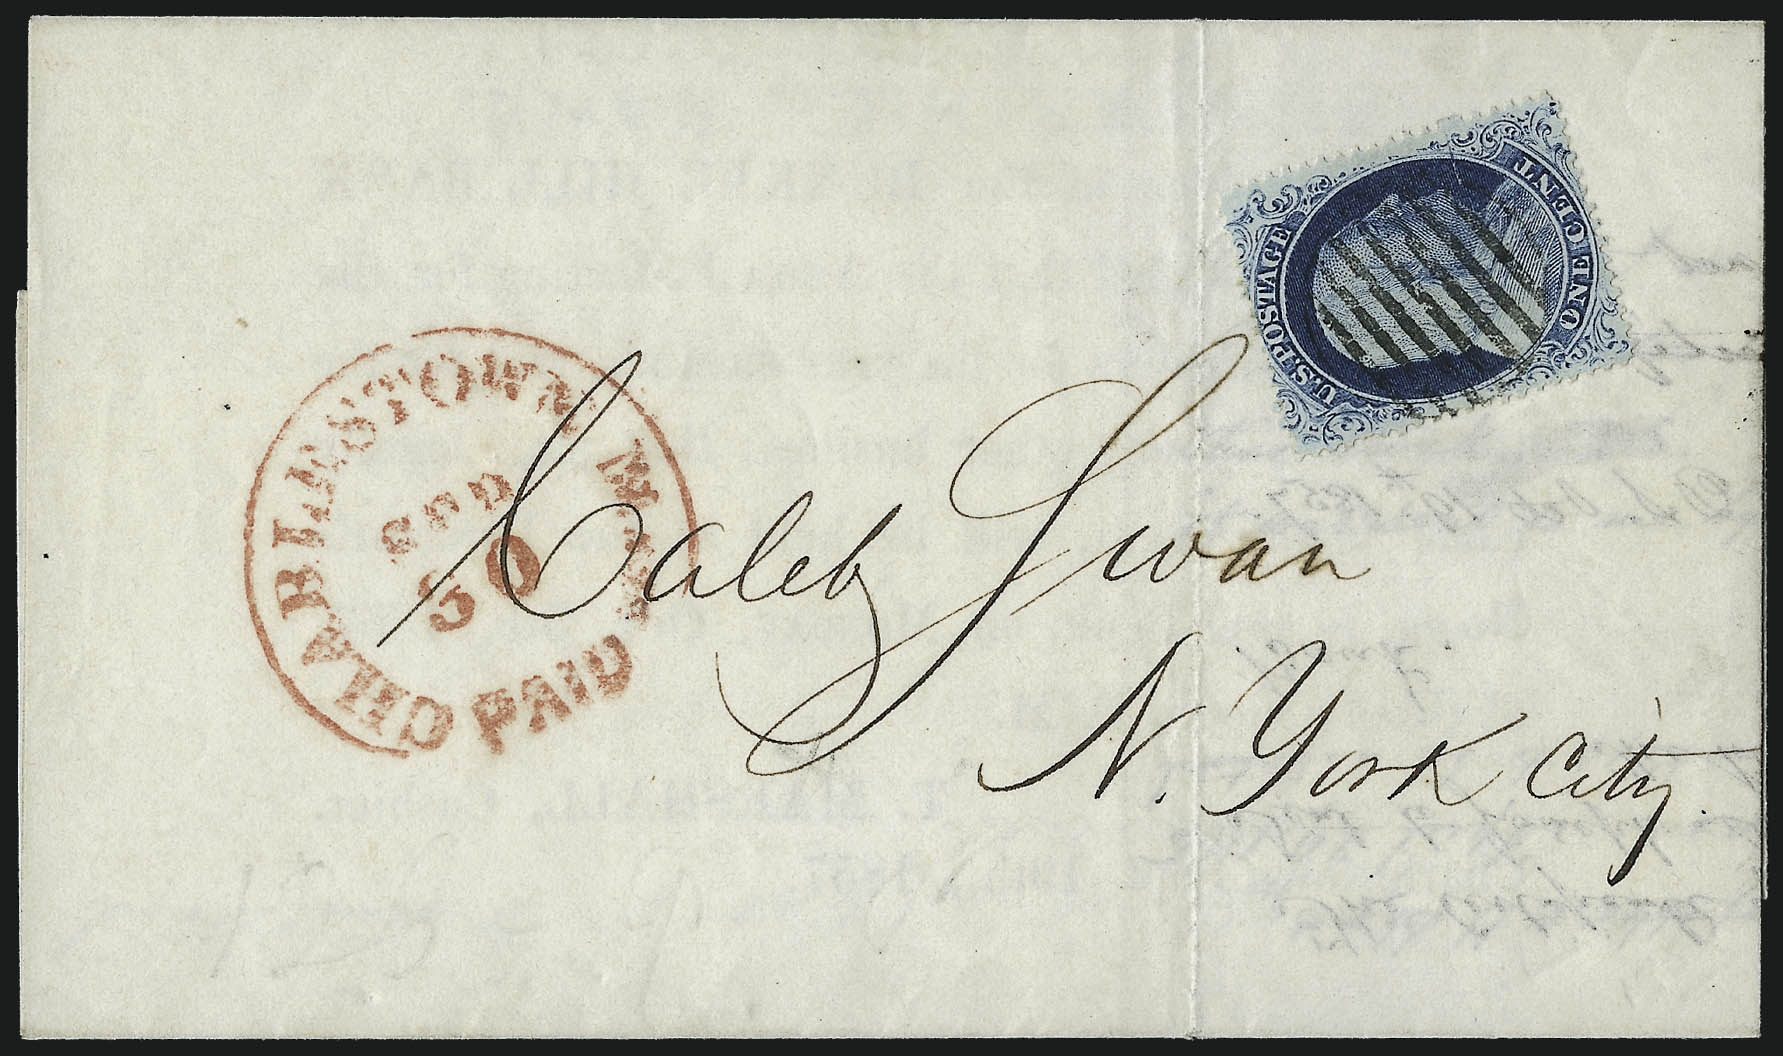 U.S. POSTAGE
ONE CENT
CHARLESTOWN MASS.
SEP
20
PAID
Caleb Swan
N. York City.